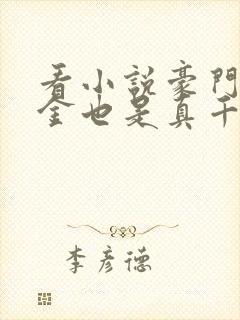 看小說豪門
金也是真千
李彥德